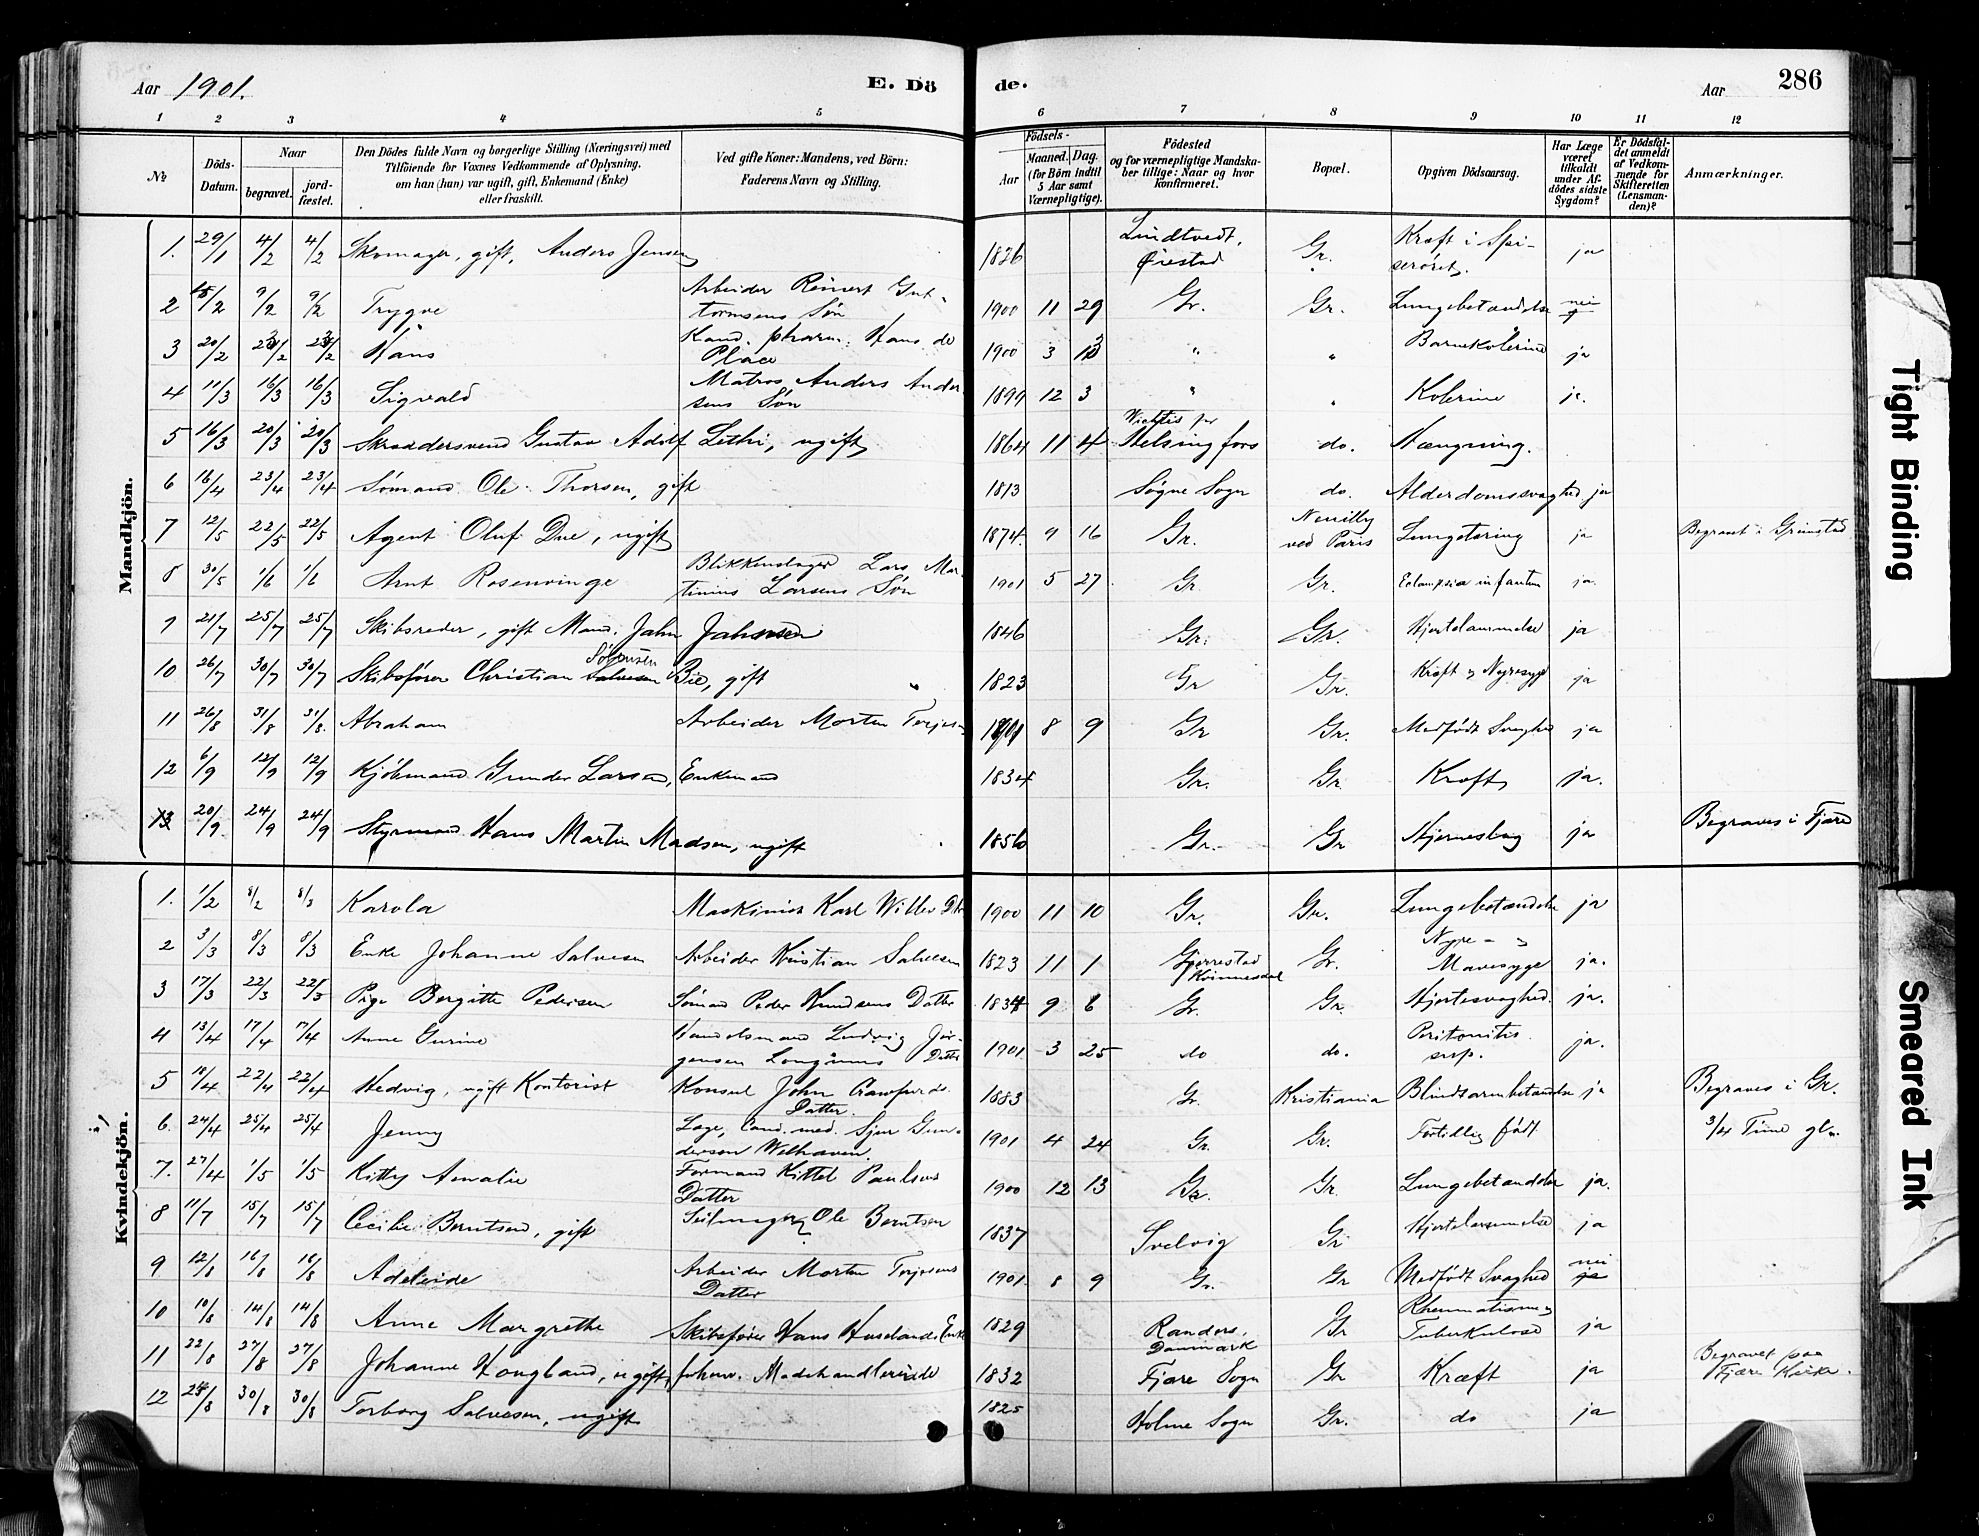 Aar 1901.
E. Dö
de.
Aar
286
1 2 3 4 5 6 7 8 9 10 11 12
No
Döds-Datum.
Naar
begravet.
jord-fæstet.
Den Dödes fulde Navn og borgerlige Stilling (Næringsvei) med
Tilföiende for Voxnes Vedkommende af Oplysning.
om han (hun) var ugift, gift, Enkemand (Enke)
eller fraskilt.
Ved gifte Koner: Mandens, ved Börn:
Faderens Navn og Stilling.
Födsels-
Aar
Maaned.
Dag.
(for Börn indtil
5 Aar samt
Værnepligtige).
Födested
og for værnepligtige Mandska-
ber tillige: Naar og hvor
konfirmeret.
Bopæl.
Opgiven Dödsaarsag.
Har Læge
været
tilkaldt
under Af-
dödes sidste
Sygdom?
Er Dödsfal-
det anmeldt
af Vedkom-
mende for
Skifteretten
(Lensman-
den)?
Anmærkninger.
Mandkjön.
1. 29/1 4/2 4/2 Skomager, gift, Anders Jensen 1826 Lindtvedt, Øiestad Gr. Kræft i Spi-serøret. ja
2 /2 9/2 9/2 Trygve Arbeider Reinert Gut-tormsens Søn 1900 11 29 Gr. Gr. Lungebetændelse nei
3 20/2 /2 /2 Hans Kand. pharm. Hans de Place 1900 3 " " Barnekolerine ja
4 11/3 16/3 16/3 Sigvald Matros Anders Ander-sens Søn 1899 12 3 " " Kolerine ja.
5 16/3 20/3 20/3 Skræddersvend Gustav Adolf Lethi, ugift 1864 11 4 Wichtis pr Helsingfors do. Hængning.
6 16/4 23/4 23/4 Sømand Ole Thorsen, gift 1813 Søgne Sogn do. Alderdomssvaghed ja
7 12/5 22/5 22/5 Agent Oluf Due, ugift 1874. 9 16 Gr. Neuilly ved Paris Lungetæring ja Begravet i Grimstad
8 30/5 1/6 1/6 Arnt Rosenvinge Blikkenslager Lars Mar-tinius Larsens Søn 1901 5 27. Gr. Gr. Eclampsia infantum ja.
9 21/7 25/7 25/7 Skibsreder, gift Mand. Jahn Jahnsen 1846 Gr. Gr. Hjertelammelse ja
10 26/7 30/7 30/7 Skibsfører Christian Sørensen Bie, gift " 1823 Gr Gr. Kræft og Nyresyge ja
11 26/8 31/8 31/8. Abraham Arbeider Morten Torjesen 1901 8 9 Gr Gr. Medfødt Svaghed ja
12 6/9 12/9 12/9 Kjøbmand Gunder Larsen, Enkemand 1834 Gr. Gr. Kræft ja.
13 20/9 24/9 24/9 Styrmand Hans Martin Madsen, ugift 1856 Gr. Gr Hjerneslag ja Begraves i Fjære
Kvindekjön.
1. 1/2 8/2 8/3 Karola Maskinist Karl Willes Dtr 1900 11 10 Gr. Gr. Lungebetændelse ja
2 3/3 8/3 8/3 Enke Johanne Salvesen Arbeider Kristian Salvesen 1823 11 1 Gjerrestad Kvinnesdal Gr. Nyre- og Mavesyge ja.
3 17/3 22/3 22/3 Pige Bergitte Pedersen Sømand Peder Knudsens Datter 1834 9 6 Gr. Gr. Hjertesvaghed. ja.
4 13/4 17/4 17/4 Anne Gurine Handelsmand Ludvig Jør-gensen Longums Datter 1901. 3 25 do do. Peritonitis susp. ja.
5 18/4 22/4 22/4 Hedvig, ugift Kontorist Konsul John Crawfurds Datter. 1883 Gr. Kristiania Blindtarmbetændelse ja Begraves i Gr.
6. 24/4 25/4 25/4 Jenny Læge, Cand. med. Sjur Gun-derson Welhaven. 1901 4 24 Gr. Gr. Fortidlig født 3/4 Time gl.
7. 27/4 1/5 1/5 Kitty Amalie Formand Kittel Paulsens Datter 1900 12 13 Gr. Gr. Lungebetændelse ja.
8 11/7 15/7 15/7 Cecilie Berntsen, gift Seilmager Ole Berntsen 1837 Svelvig Gr Hjertelammelse ja
9 12/8 16/8 16/8 Adeleide Arbeider Morten Torjesens Datter 1901. 8 9 Gr. Gr Medfødt Svaghed nei ja
10 10/8 14/8 14/8 Anne Margrethe Skibsfører Hans Huselands Enke 1829 Randers, Danmark Gr Rheumatisme og Tuberkulose ja
11 22/8 27/8 27/8 Johanne Hougland, ugift, forhenv. Madehandlerinde 1832 Fjære Sogn Gr Kræft ja Begravet paa Fjære Kirke.
12 /8 30/8 30/8 Torborg Salvesen, ugift 1825 Holme Sogn Gr. do ja
Tight Binding
Smeared Ink